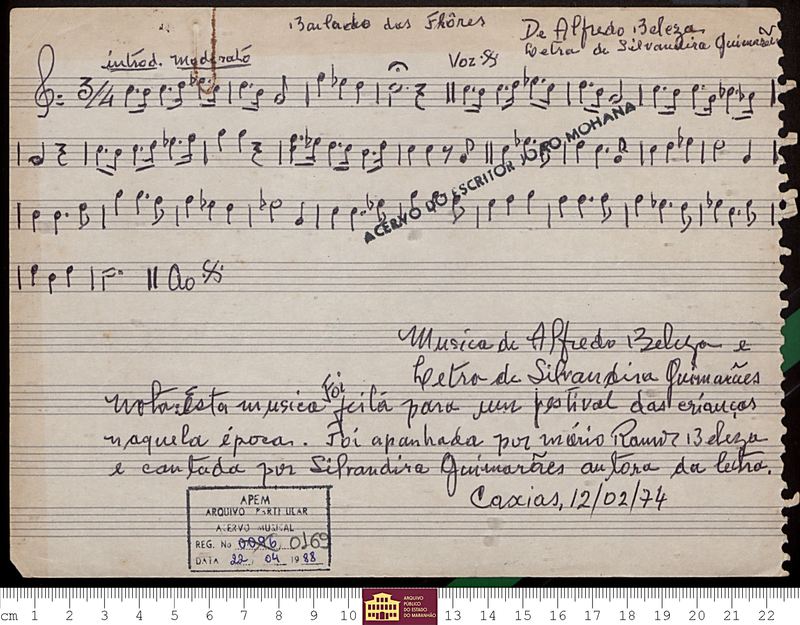 Bailado das Flôres
De Alfredo Beleza
Letra de Silvandira Guimarães
introd. moderato
Voz
3/4
ACERVO DO ESCRITOR JOÃO MOHANA
Ao
Musica de Alfredo Beleza e
Letra de Silvandira Guimarães
Nota: Esta musica Foi feita para um festival das crianças
naquela época. Foi apanhada por mário Ramos Beleza
e cantada por Silvandira Guimarães autora da letra.
Caxias, 12/02/74
APEM
ARQUIVO PARTICULAR
ACERVO MUSICAL
REG. No 0086 0169
DATA 22 04 1988
cm 1 2 3 4 5 6 7 8 9 10 13 14 15 16 17 18 19 20 21 22
ARQUIVO
PÚBLICO
DO ESTADO
DO MARANHÃO